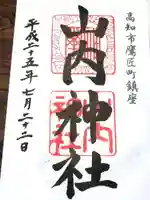 高知市鷹匠町鎮座
山内神社
平成二十五年七月二十二日